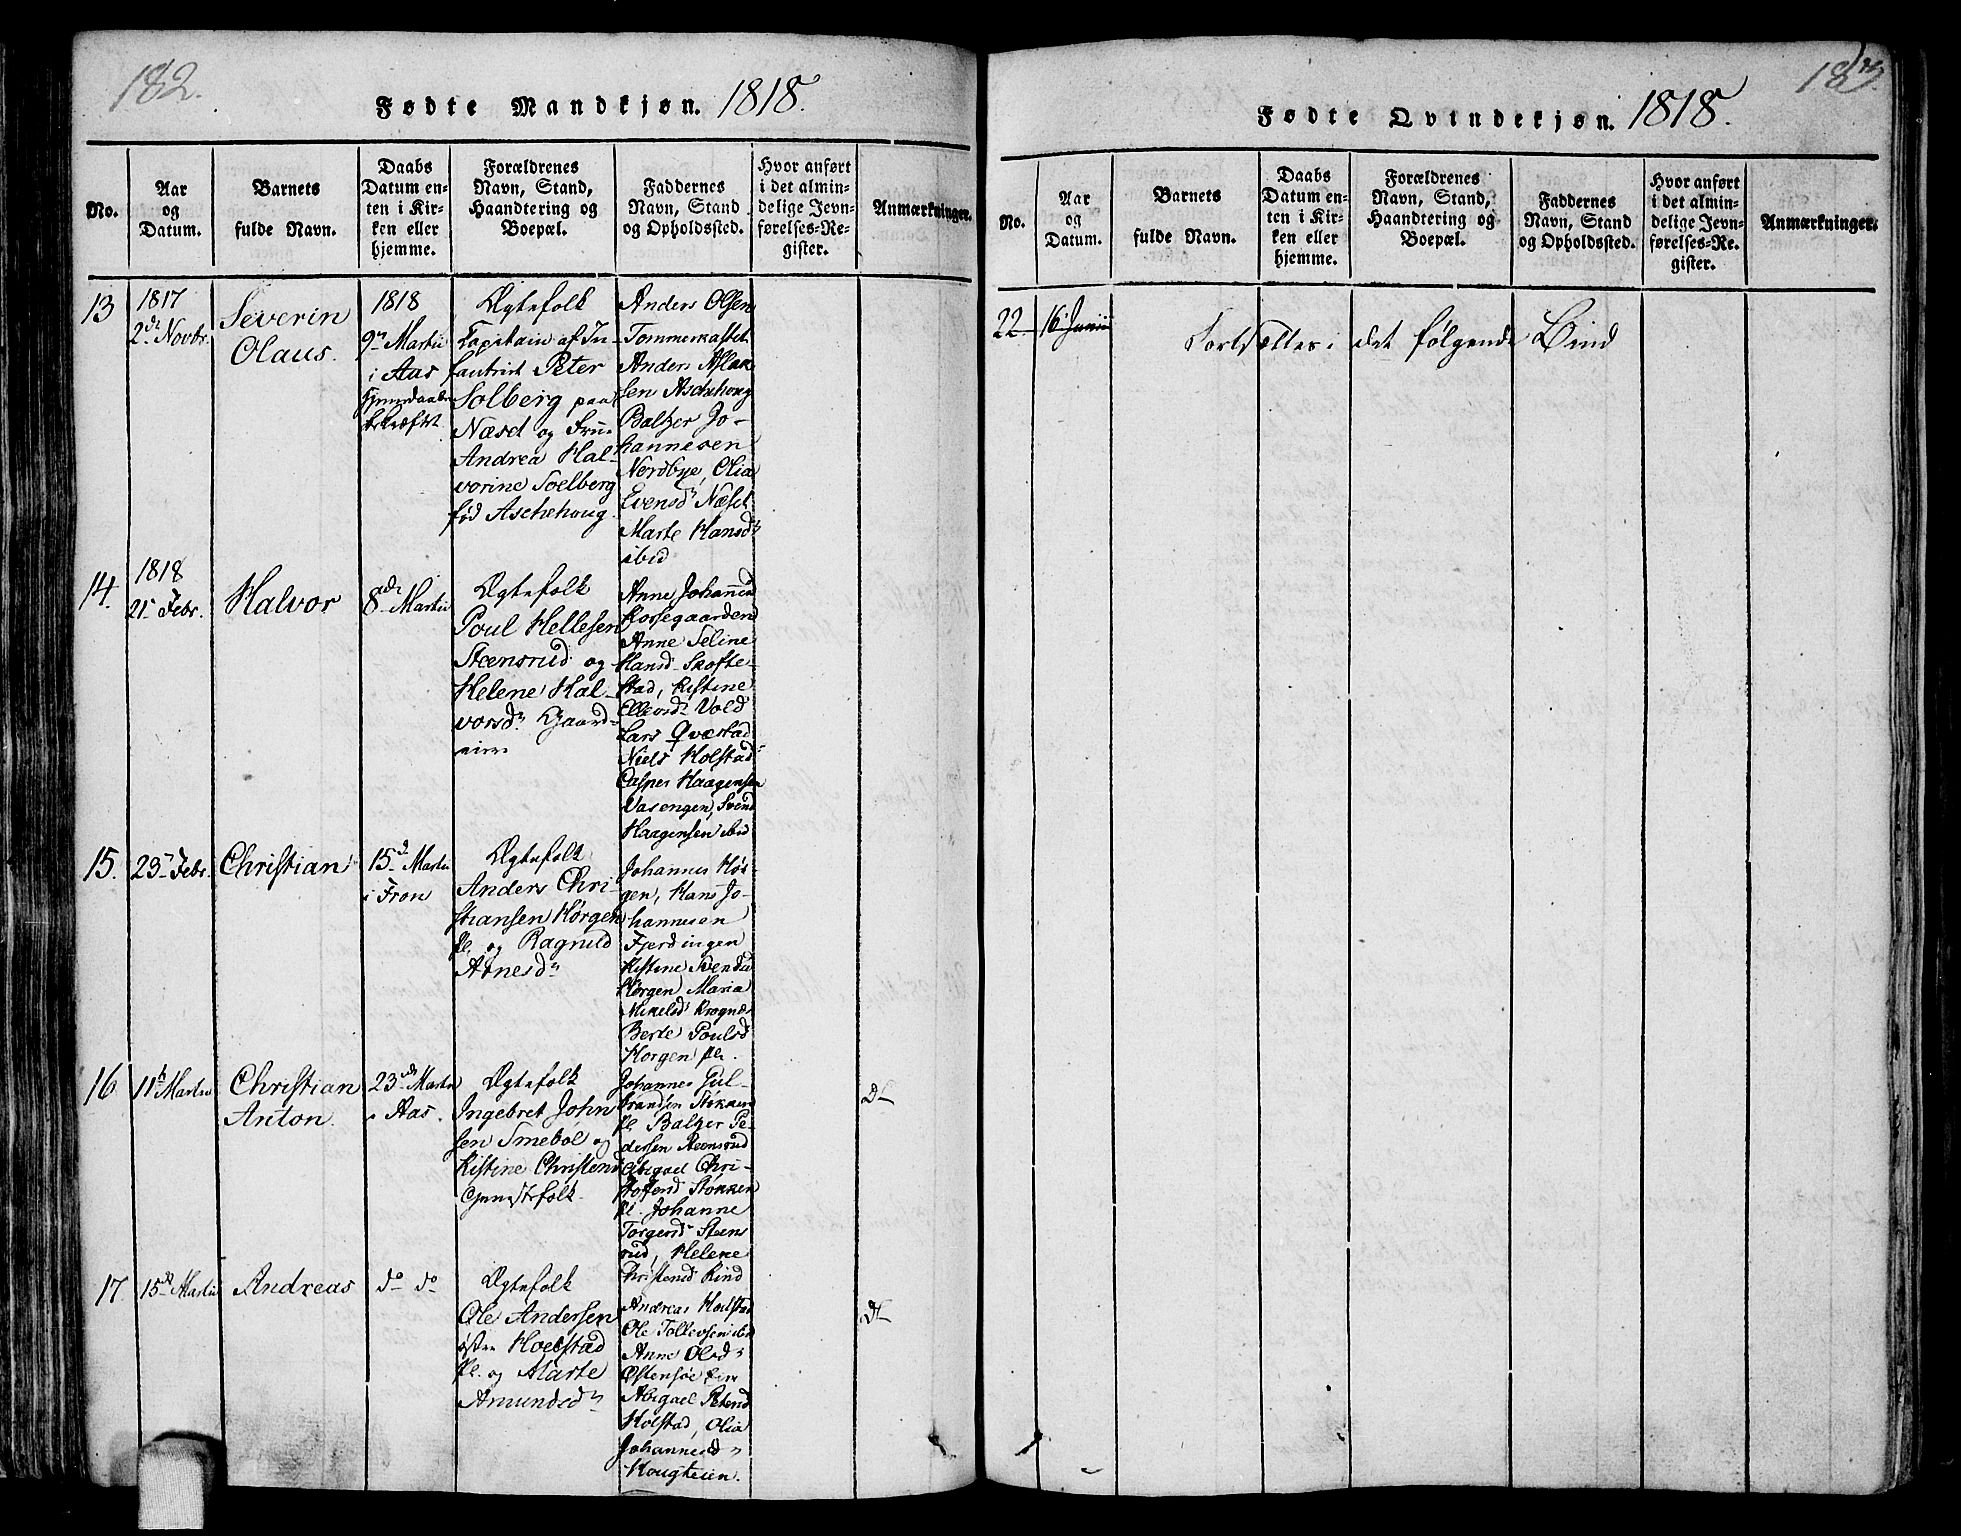 182.
Fødte Mandkjøn. 1818.
No.
Aar
og
Datum.
Barnets
fulde Navn.
Daabs
Datum en-
ten i Kir-
ken eller
hjemme.
Forældrenes
Navn, Stand,
Haandtering og
Boepæl.
Faddernes
Navn, Stand
og Opholdssted.
Hvor anført
i det almin-
delige Jevn-
førelses-Re-
gister.
Anmærkninger.
13
1817
2de Novbr.
Severin
Olaus.
1818
9de Martii
i Aas
hjemdaaben
bekræftet
Ægtefolk
Capitain af In-
fanteriet Peter
Solberg paa
Næset og Fru
Andrea Hal-
vorine Soelberg
fød Aschehoug.
Anders Olsen
Tommerkastet
Anders Aslak
sen Aschehoug
Baltzer Jo-
hannesen
Nordbye, Olia
Evensdr Næset
Marte Hansdr
ibid
14.
1818
21 Febr.
Halvor
8de Martii
Ægtefolk
Poul Hellesen
Steensrud og
Helene Hal-
vorsdr Gaard-
eier
Anne Johannesd
Korsegaarden
Anne Seline
Hansd Skofte-
stad, Kistine
Ellevsdr Vold
Lars Qvestad
Niels Holstad
Casper Haagensen
Vasengen, Svend
Haagensen ibid
15.
23 Febr.
Christian
15de Martii
i Fron
Ægtefolk
Anders Chri-
stiansen Hørgen
pl. og Ragnild
Arnesdr
Johannes Hør-
gen, Hans Jo-
hannesen
Fjerdingen
Kistine Svendsd
Hørgen Maria
Mikelsd Krognæs
Berte Poulsd
Horgen pl.
16
11te Martii
Christian
Anton.
23de Martii
i Aas.
Ægtefolk
Ingebret John
sen Smebøl og
Kistine Christensd
Gjenistefolk
Johannes Gul-
brandsen Støkken
pl. Balzer Pe-
dersen Steensrud
Abigael Chri-
stoffersd Støkken
pl. Johanne
Torgersd Steens
rud, Helene
Christensd Rind
d
17
15de Martii
Andreas
do do
Ægtefolk
Ole Andersen
østre Hoelstad
pl. og Marte
Amundsdr
Andreas Holstad
Ole Tollevsen ibd
Anne Olsdr
Østensøe
Abigael Petersd
Holstad, Olia
Johannesdr
Hougteien.
d
183.
Fødte Qvindekjøn. 1818.
No.
Aar
og
Datum.
Barnets
fulde Navn.
Daabs
Datum en-
ten i Kir-
ken eller
hjemme.
Forældrenes
Navn, Stand,
Haandtering og
Boepæl.
Faddernes
Navn, Stand
og Opholdssted.
Hvor anført
i det almin-
delige Jevn-
førelses-Re.
gister.
Anmærkninger.
22 16 Junii
Fortsættes i det følgende Bind